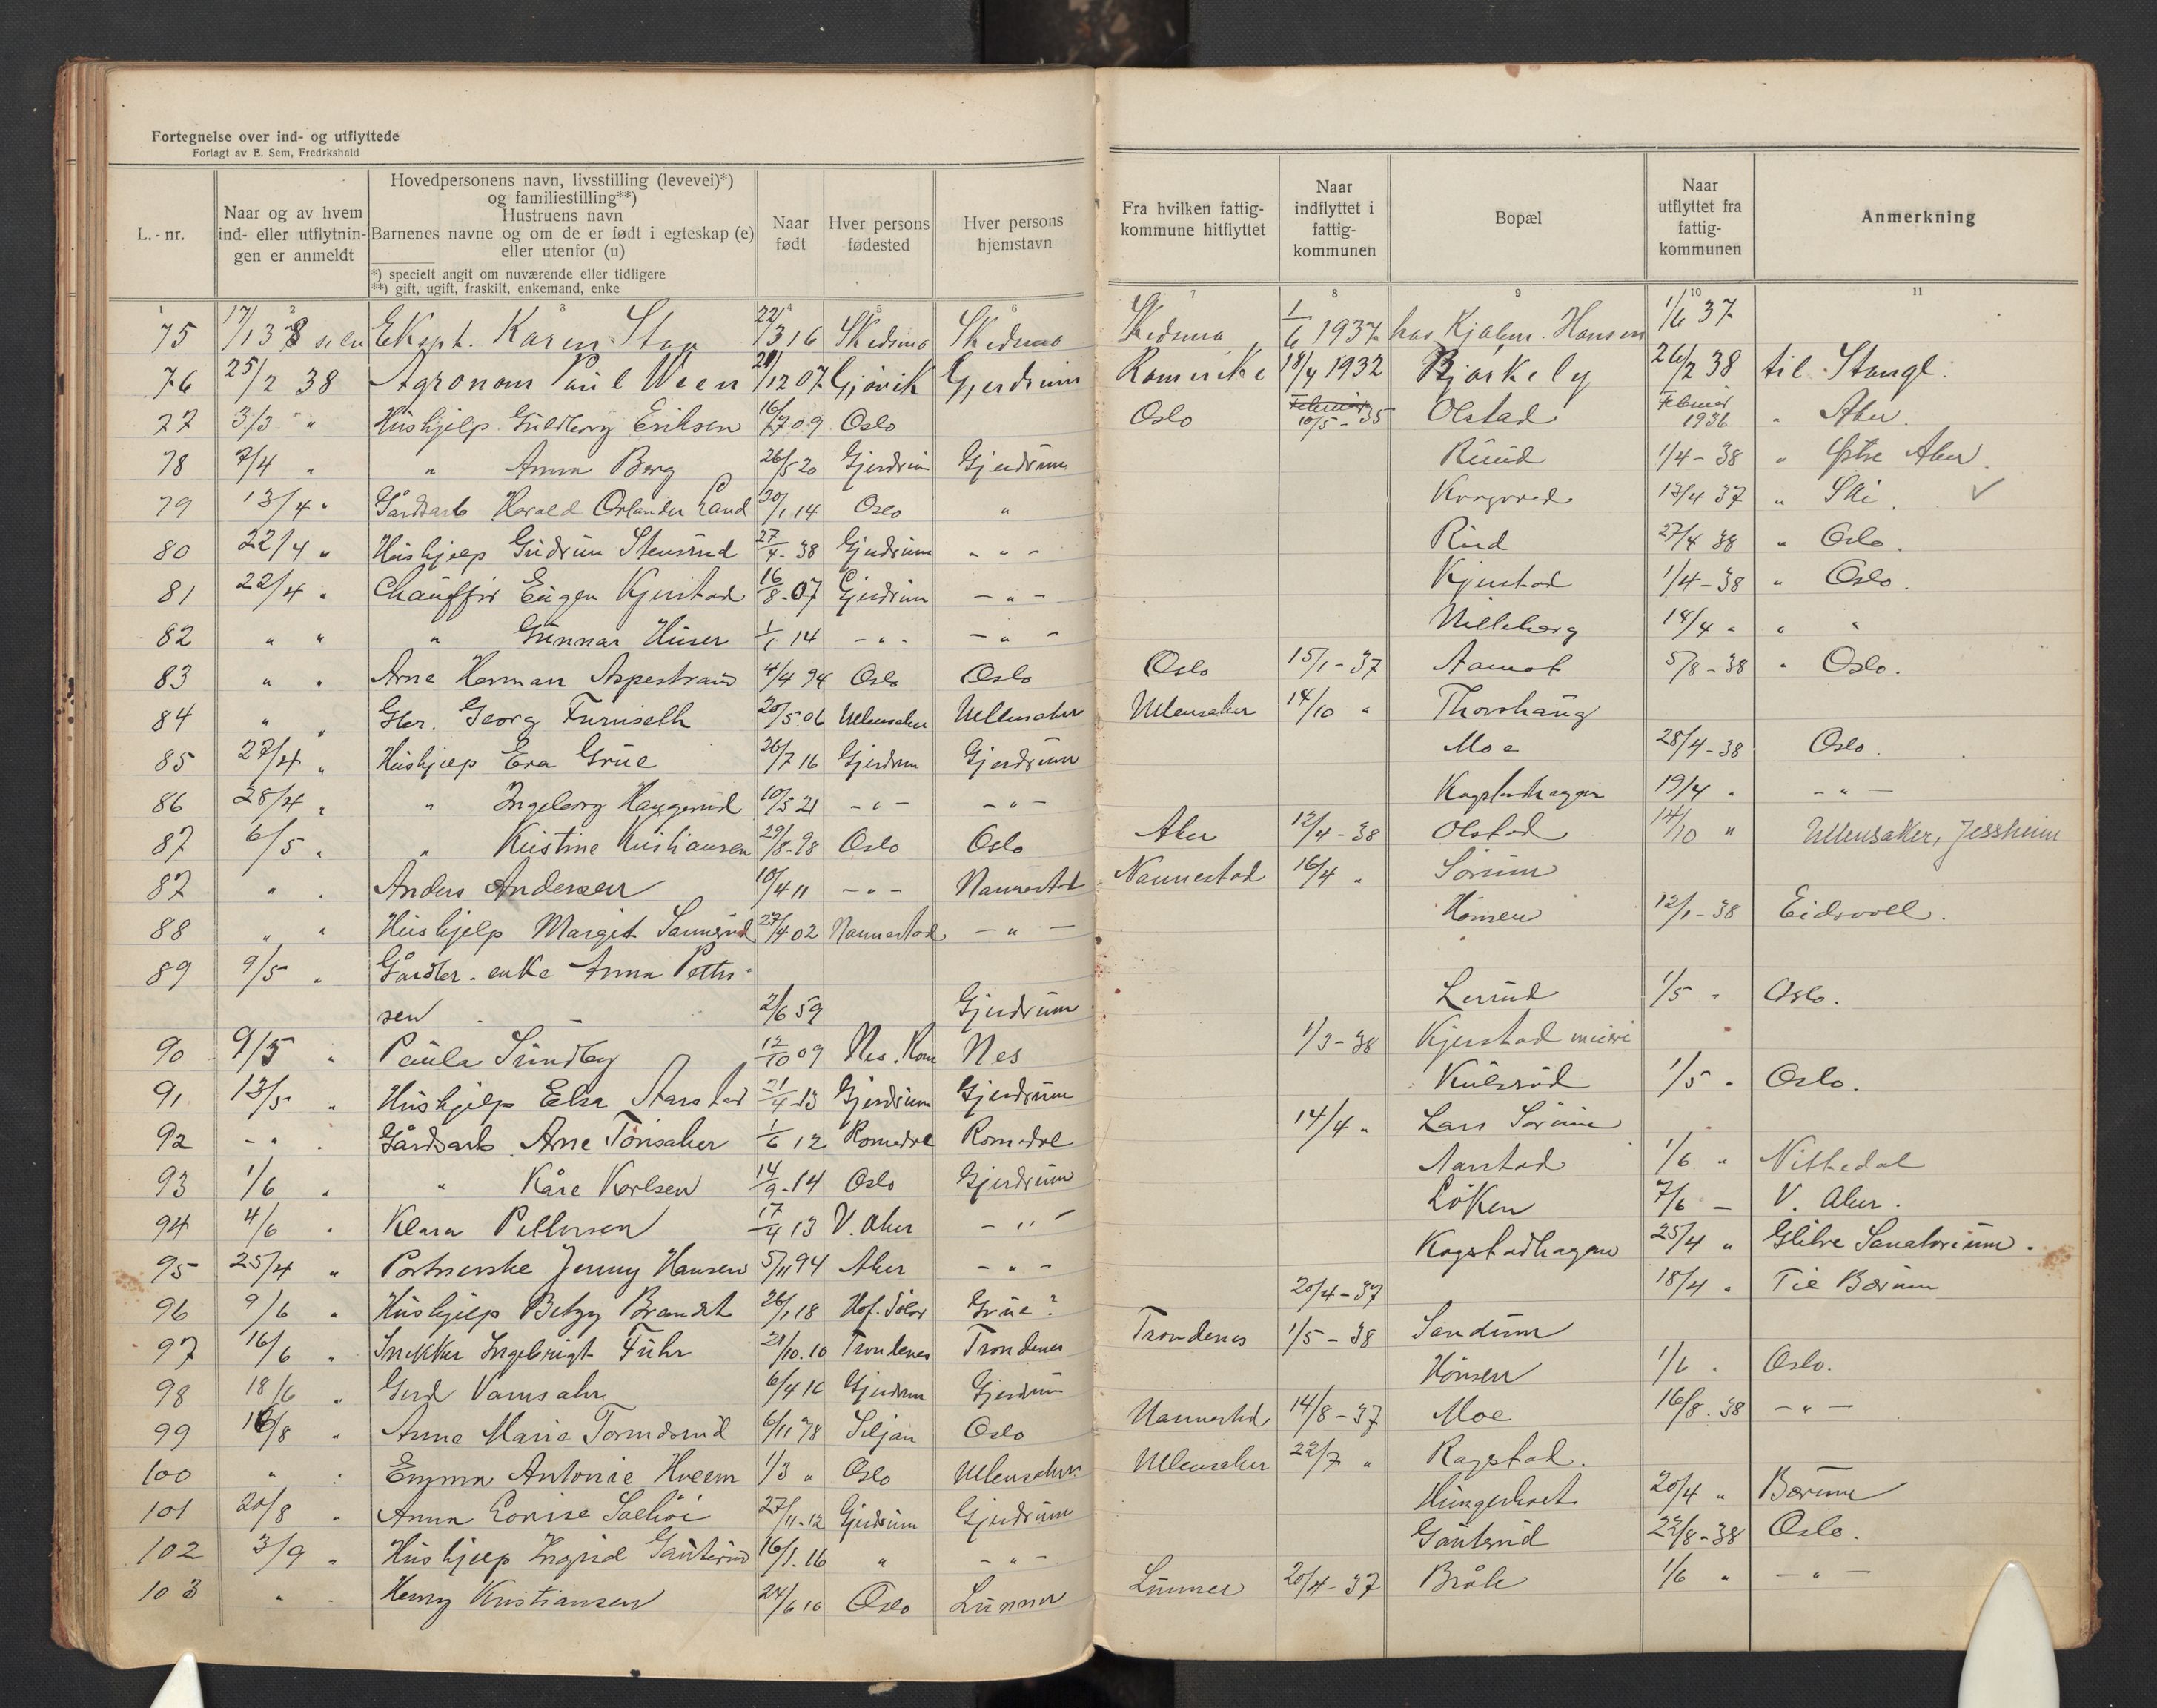 Fortegnelse over ind- og utflyttede
Forlagt av E. Sem, Fredrkshald
L.-nr.
Naar og av hvem ind- eller utflytningen er anmeldt
Hovedpersonens navn, livsstilling (levevei)*)
og familiestilling**)
Hustruens navn
Barnenes navne og om de er født i egteskap (e)
eller utenfor (u)
*) specielt angit om nuværende eller tidligere
**) gift, ugift, fraskilt, enkemand, enke
Naar født
Hver persons fødested
Hver persons hjemstavn
Fra hvilken fattigkommune hitflyttet
Naar indflyttet i fattigkommunen
Bopæl
Naar utflyttet fra fattigkommunen
Anmerkning
1 2 3 4 5 6 7 8 9 10 11
75 Ekspt. Karen 22/3 16 Skedsmo Skedsmo Skedsmo 1/6 1937 hos Hjalm. Hansen 1/6 37
76 25/2 38 Agronom Paul Ween 21/12 07 Gjøvik Gjerdrum Romerike 18/4 1932 Bjørkely 26/2 38 til Stange
77 3/3 " Hushjelp Guldborg Eriksen 09 Oslo Oslo 10/5-35 Olstad Februar 1936 " Aker.
78 7/4 " " Anna Berg 26/5 20 Gjerdrum Gjerdrum Ruud 1/4-38 " Østre Aker.
79 13/4 " Gårdsarb Harald Orlander Land 20/1 14 Oslo " 13/4 37 " Ski.
80 22/4 " Hushjelp Gudrun Stensrud 27/4-38 Gjerdrum - " - Rud 27/4 38 " Oslo.
81 22/4 " Chauffør Eugen Kjerstad 16/8-07 Gjerdrum - " - Kjerstad 1/4-38 " Oslo.
82 " " " Gunnar Huser 1/1 14 - " - - " - 14/4 " " "
83 " " Arne Herman Aspestrand 4/4 94 Oslo Oslo Oslo 15/1-37 Aamot 5/8-38 " Oslo.
84 " " Gbr. Georg Furuseth 20/5 06 Ullensaker Ullensaker Ullensaker 14/10 " Thorshaug
85 27/4 " Hushjelp Eva Grue 26/7 16 Gjerdrum Gjerdrum Moe 28/4-38 Oslo.
86 28/4 " " Ingeborg Haugerud 10/5 21 - " - - " - Kogstadhagen 19/4 " - " -
87 6/5 " " Kristine Kristiansen 29/8-98 Oslo Oslo Aker 12/4-38 Olstad 14/10 " Ullensaker, Jessheim
87 " " Anders Andersen 10/4 11 - " - Nannestad Nannestad 16/4 " Sørum
88 " " Hushjelp Margit 27/4 02 Nannestad - " - Hønsen 12/1-38 Eidsvoll.
89 9/5 " Gårdbr. enke Anna Petter-
sen 2/6 59 Gjerdrum Lerud 1/5 " Oslo.
90 9/5 " Paula Sundby 12/10 09 Nes. Rom Nes 1/3-38 Kjerstad meieri
91 13/5 " Hushjelp Elsa Aarstad 21/4-13 Gjerdrum Gjerdrum Kulsrud 1/5 " Oslo.
92 - " Gårdsarb. Arne Tørisaker 1/6 12 Romedal Romedal 14/4 " Lars Sørum
93 1/6 " " Kåre Karlsen 14/9-14 Oslo Gjerdrum Aarstad 1/6 " Nittedal
94 4/6 " Klara Pettersen 17/4 13 V. Aker - " - Løken 7/6 - V. Aker.
95 25/4 " Portnerske Jenny Hansen 5/11 94 Aker - " - Kogstadhagen 25/4 " Glitre Sanatorium.
96 9/6 " Hushjelp Betzy Brandt 26/1 18 Hof. Solør Grue? 20/4-37 18/4 " Til Bærum
97 16/6 " Snekker Ingebrigt Führ 21/10.10 Trondenes Trondenes Trondenes 1/5-38 Sandum
98 18/6 " Gerd 6/4 16 Gjerdrum Gjerdrum Hønsen 1/6 " Oslo.
99 16/8 " Anna Marie 6/11 98 Siljan Oslo Nannestad 14/8-37 Moe 16/8 38 - " -
100 " " Emma Antonie Hveem 1/3 " Oslo Ullensaker Ullensaker 22/7 " Ragstad.
101 20/8 " Anna Lovise 27/11-12 Gjerdrum Gjerdrum Hungerholt 20/4 " Bærum
102 3/9 " Hushjelp Ingrid Gauterud 16/1.16 " - " - Gauterud 22/8-38 Oslo.
103 " " Henry Kristiansen 24/6 10 Oslo Lunner Lunner 20/4-37 Bråte 1/6 " - " -